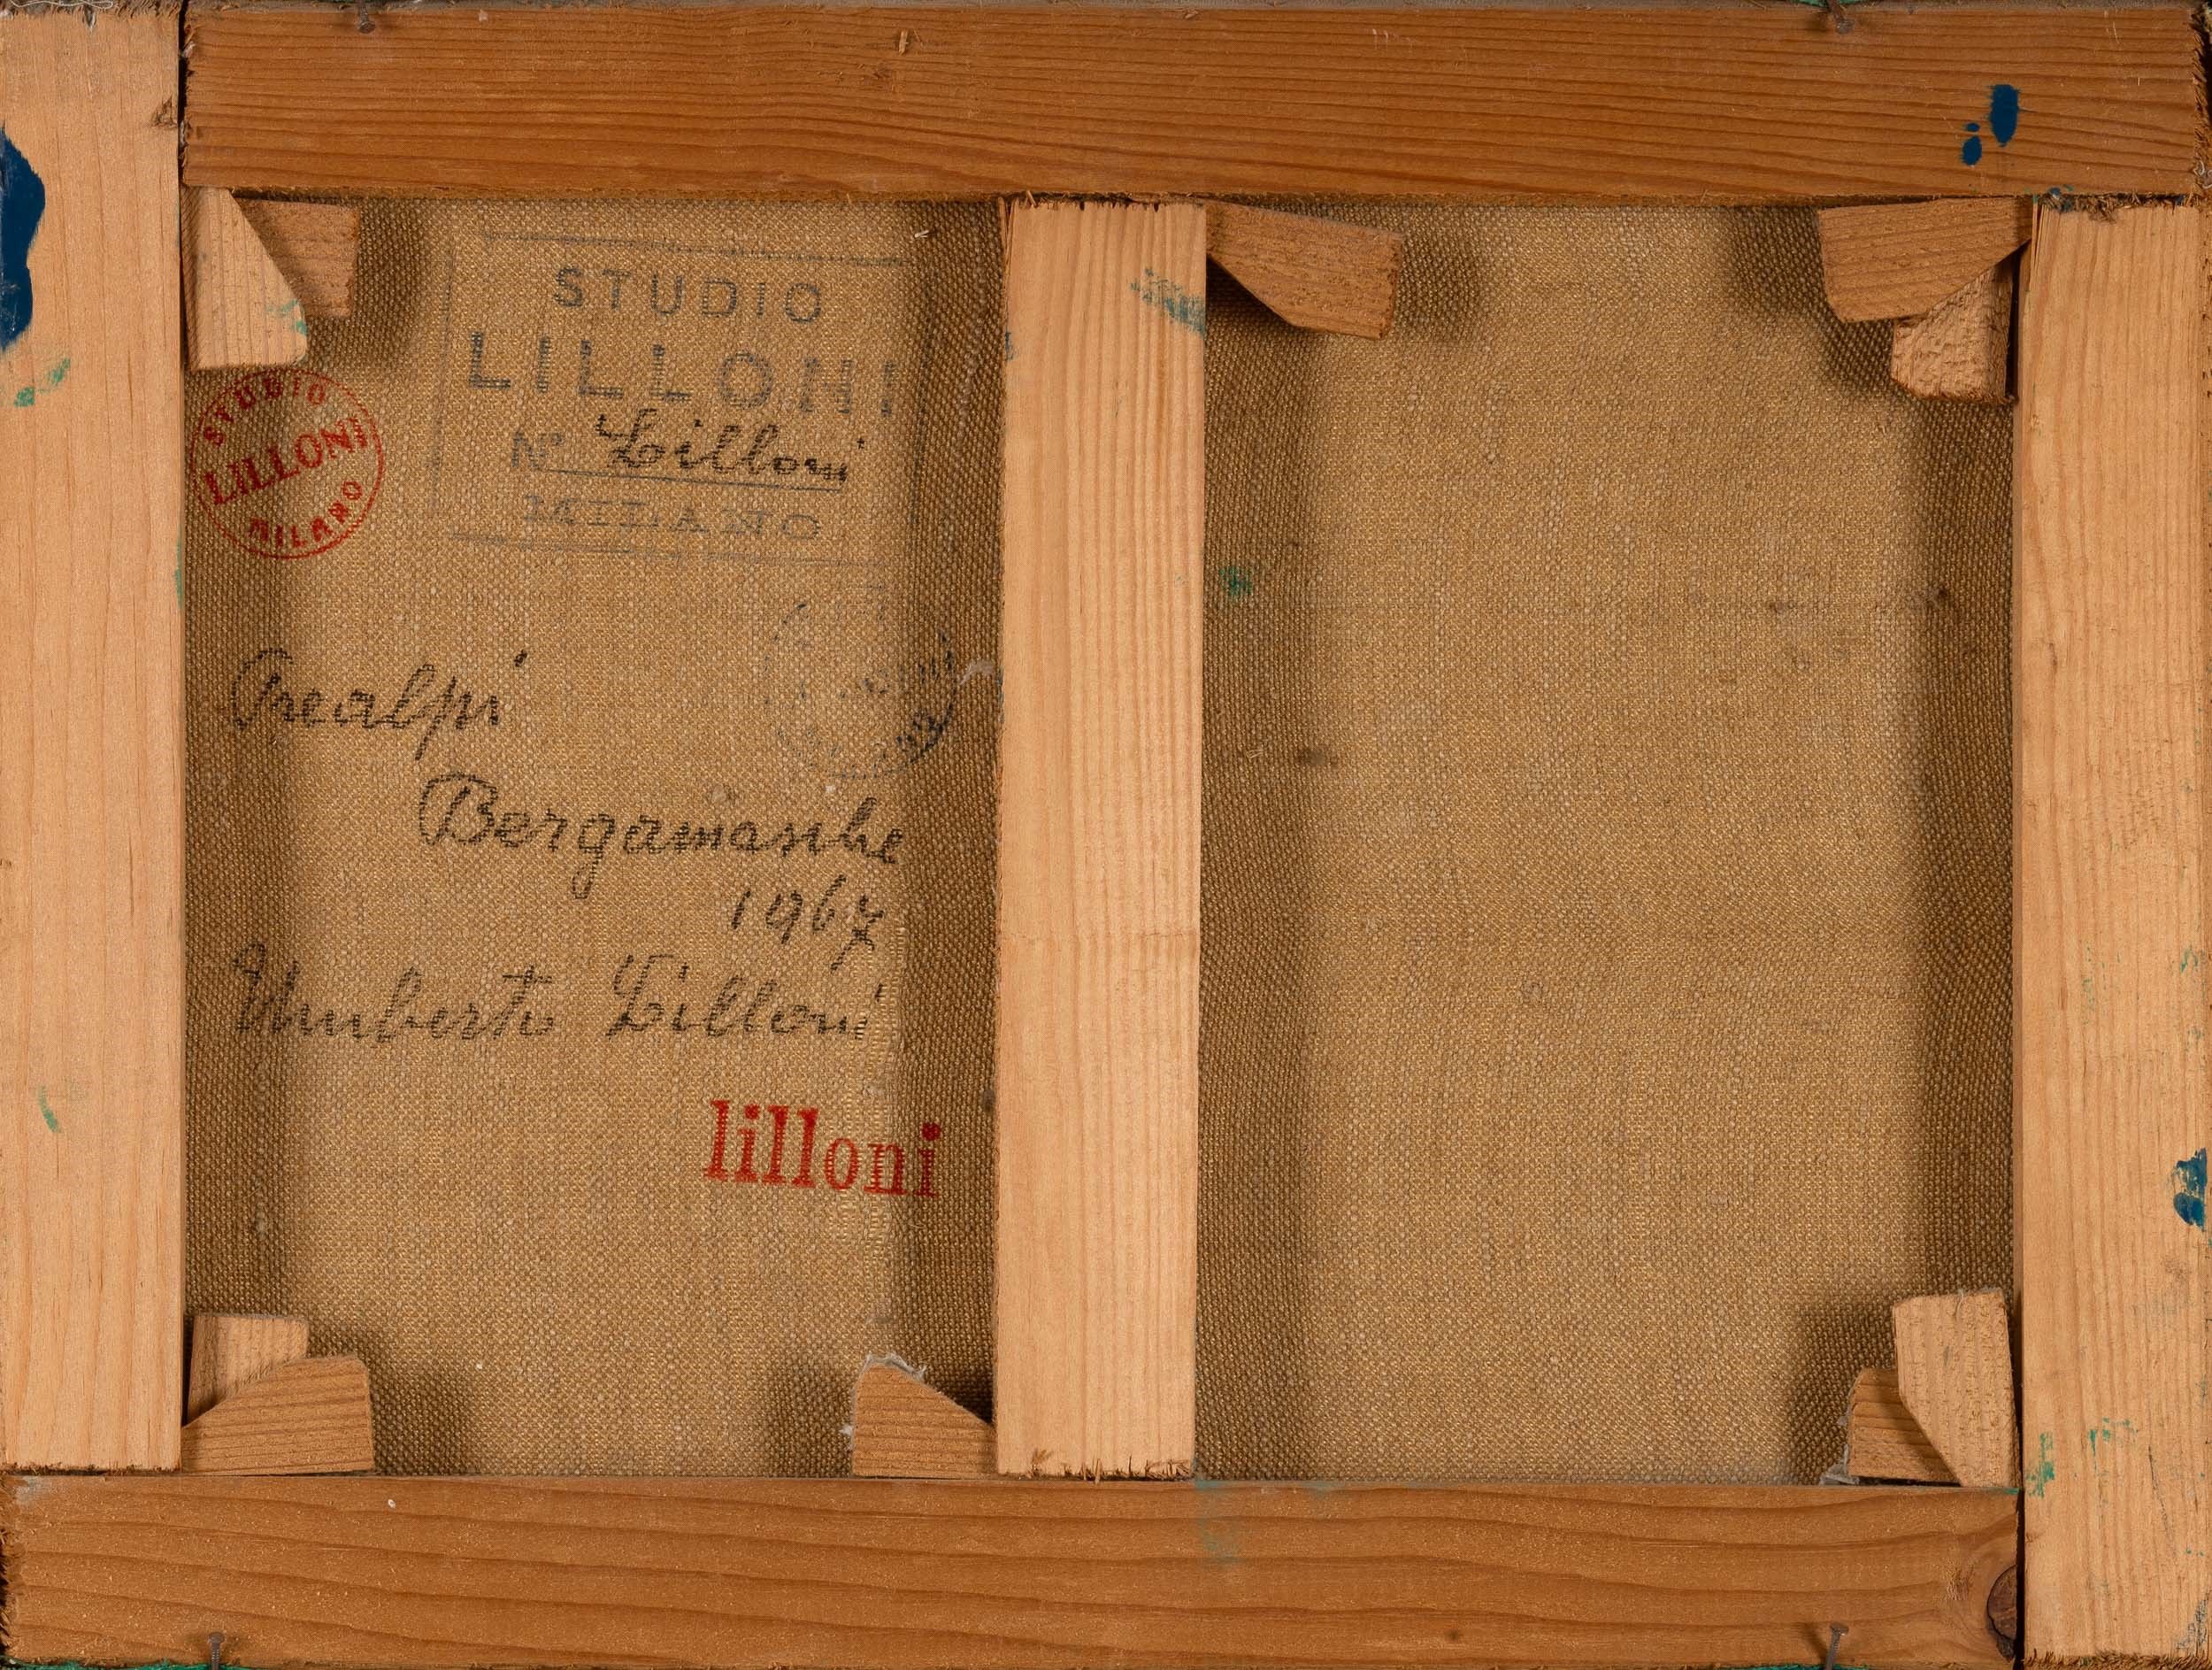 STUDIO
LILLONI
Nº Lilloni
MILANO
STUDIO
LILLONI
MILANO
Prealpi
Bergamasche
1967
Umberto Lilloni
lilloni